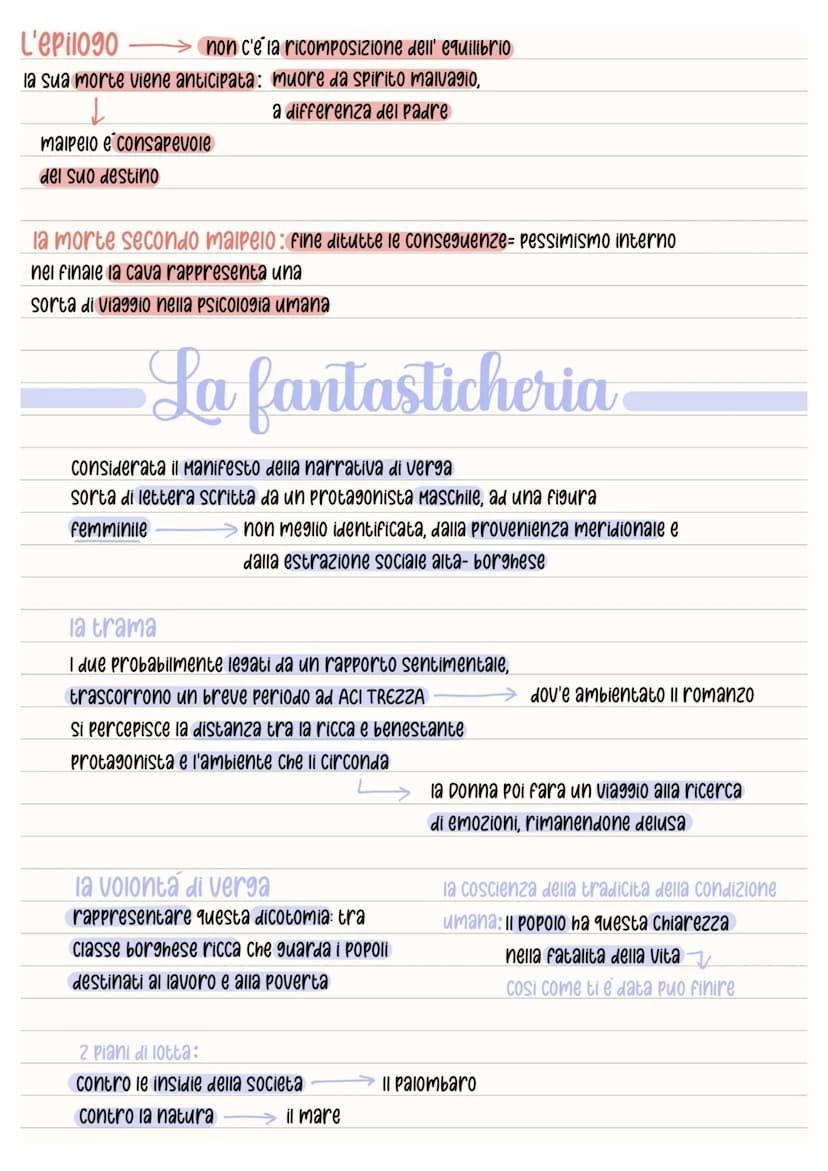 L'epilogo → non c'é la ricomposizione dell' equilibrio
la sua morte viene anticipata: muore da spirito malvagio,
a differenza del padre
malpelo é consapevole
del suo destino
la morte secondo malpelo: fine ditutte le conseguenze= pessimismo interno
nel finale la cava rappresenta una
sorta di viaggio nella psicologia umana
La fantasticheria
considerata il Manifesto della narrativa di verga
sorta di lettera scritta da un protagonista Maschile, ad una figura
femminile → non meglio identificata, dalla provenienza meridionale e
dalla estrazione sociale alta- borghese
la trama
I due probabilmente legati da un rapporto sentimentale,
trascorrono un breve periodo ad ACI TREZZA → dov'e ambientato Il romanzo
Si percepisce la distanza tra la ricca e benestante
protagonista e l'ambiente che li circonda
la Donna poi fara un viaggio alla ricerca
di emozioni, rimanendone delusa
la volontá di verga
rappresentare questa dicotomia: tra
classe borghese ricca che guarda i popoli
destinati al lavoro e alla poverta
la coscienza della tradicita della condizione
umana: Il popolo ha questa chiarezza
nella fatalita della vita
cosi come ti é data puo finire
2 piani di lotta:
contro le insidie della societa → Il palombaro
contro la natura → il mare